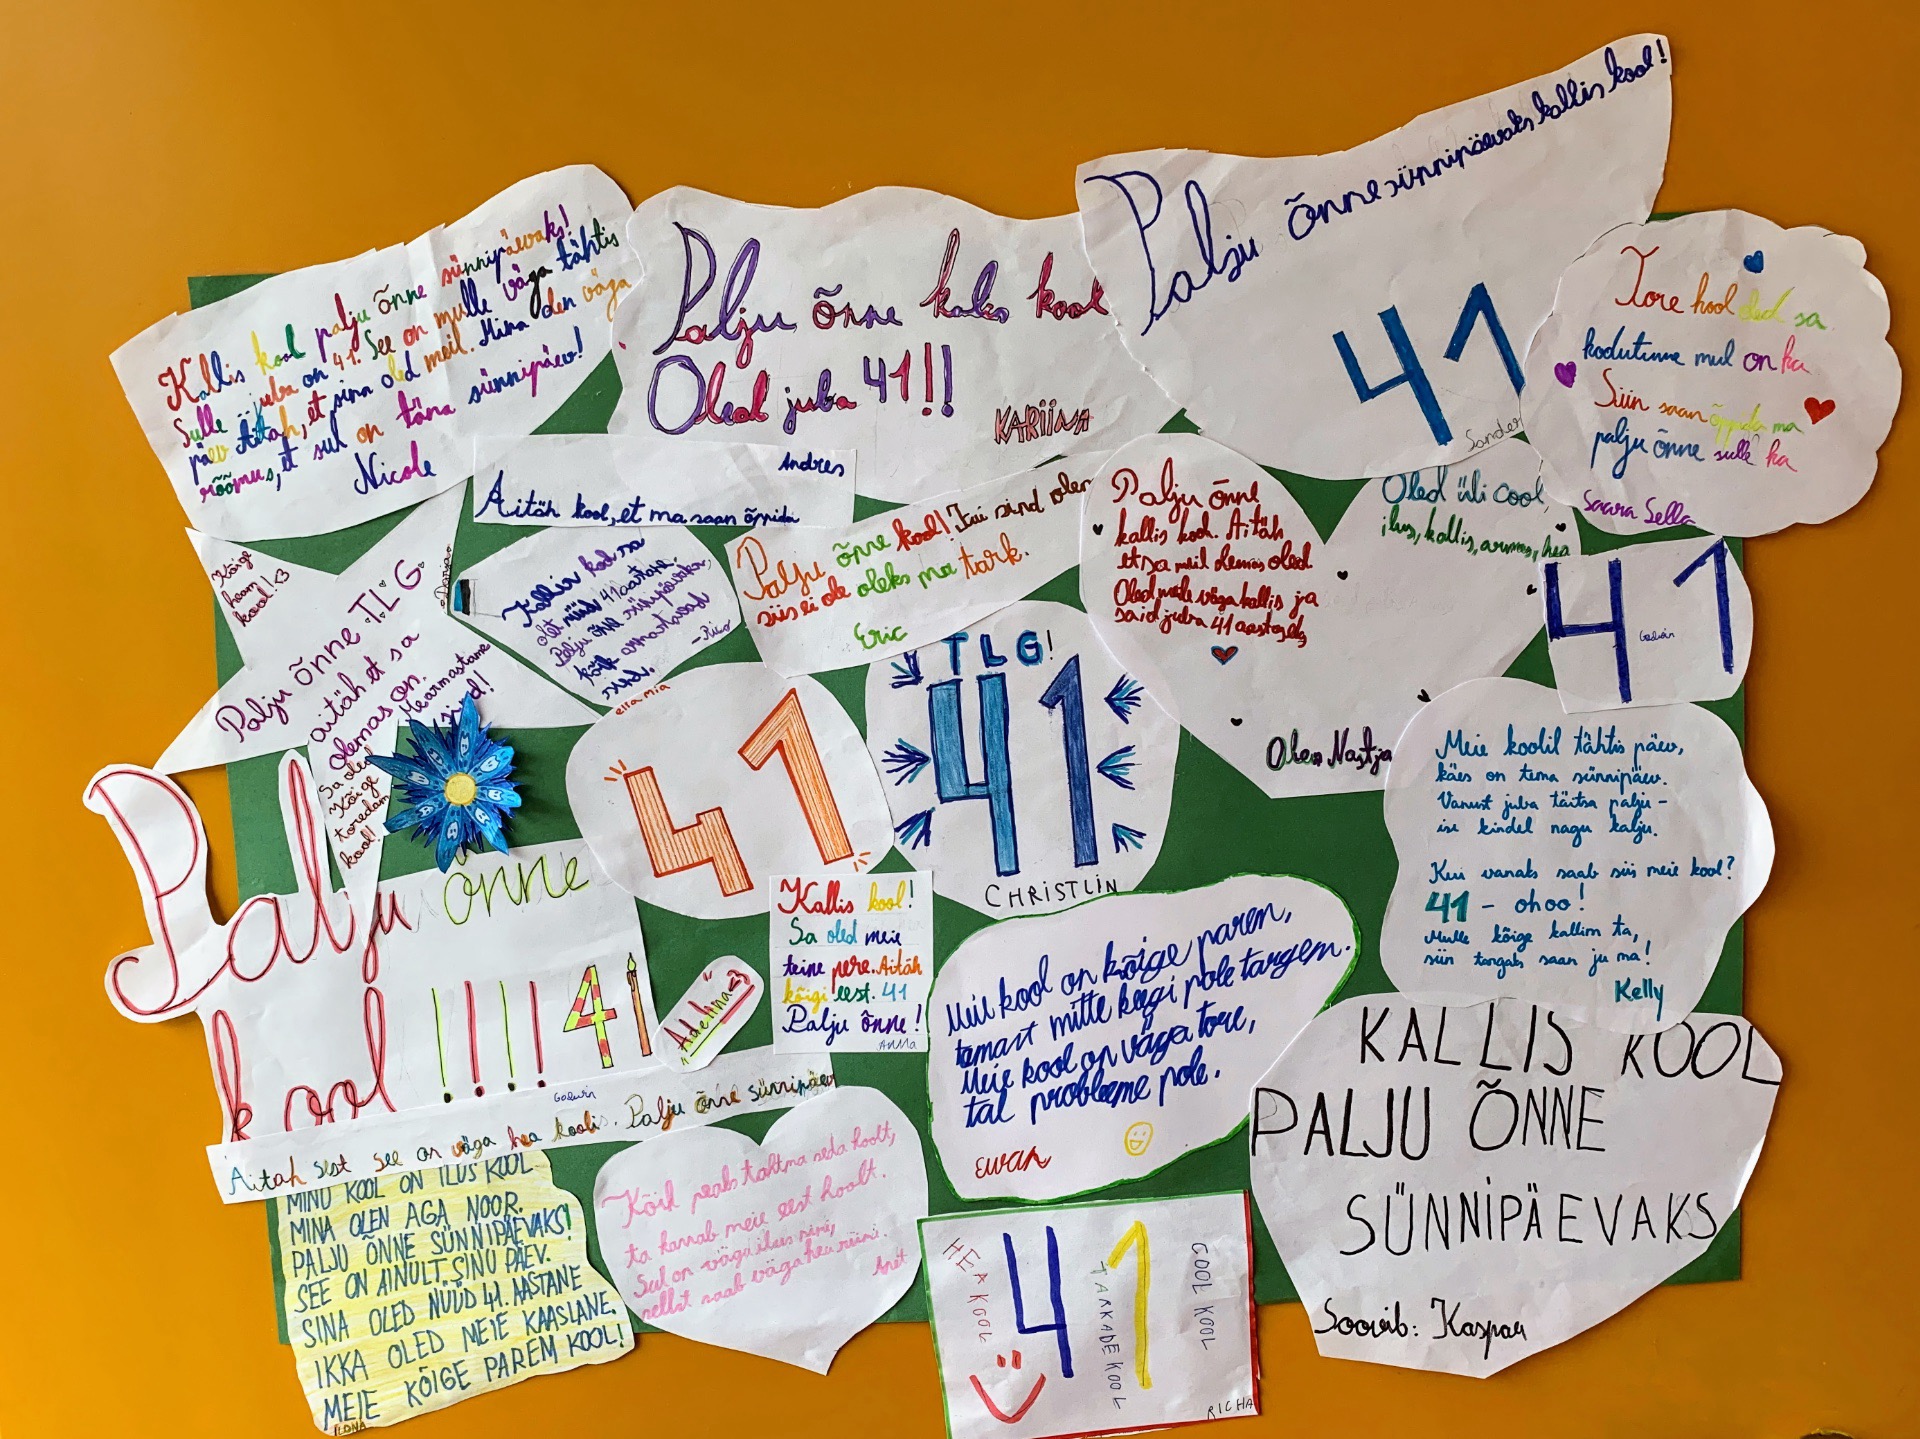 Kallis kool palju õnne sünnipäevaks!
Sulle juba on 41. See on mulle väga tähtis
päev Aitäh, et sina oled meil. Mina olen väga
rõõmus, et sul on täna sünnipäev!
Nicole
Palju õnne kalis kool
Oled juba 41!!
KARIINA
Palju õnne sünnipäevaks kallis kool!
41
Sander
Tore kool oled sa
kodutunne mul on ka
Siin saan õppida ma
palju õnne sulle ka
Saara Sella
Andres
Aitäh kool, et ma saan õppida
Kõige
heam
kool! <3
Palju õnne TLG
aitäh et sa
olemas on.
Me armastame
sind!
Sa oled
kõige
toredam
kool!
Darja
Kallis kool sa
olet nüüd 41 aastane.
Palju õnne sünnipäevaks,
kõik armastavad
sind.
Palju õnne kool! Kui sind olen
siis ei ole oleks ma tark.
Eric
Palju õnne
kallis kool. Aitäh
et sa meil olemas oled
Oled meile väga kallis ja
said juba 41 aastaseks
Oled üli cool,
ilus, kallis, armas, hea
Olen Nastja
41
Godwin
ella mia
41
TLG!
41
CHRISTLIN
Meie koolil tähtis päev,
käes on tema sünnipäev.
Vanust juba täitsa palju -
ise kindel nagu kalju.
Kui vanaks saab siis meie kool?
41 - ohoo!
Mulle kõige kallim ta,
siin targaks saan ju ma!
Kelly
Palju õnne
kool !!!! 41
Godwin
Adelina <3
Kallis kool!
Sa oled meie
teine pere. Aitäh
kõigi eest. 41
Palju õnne!
Anna
Meie kool on kõige parem,
tamast mitte keegi pole targem.
Meie kool on väga tore,
tal probleeme pole.
Ewan
KALLIS KOOL
PALJU ÕNNE
SÜNNIPÄEVAKS
Soovib: Kaspar
Aitäh sest see on väga hea koolis. Palju õnne sünnipäev
MINU KOOL ON ILUS KOOL
MINA OLEN AGA NOOR.
PALJU ÕNNE SÜNNIPÄEVAKS!
SEE ON AINULT SINU PÄEV.
SINA OLED NÜÜD 41. AASTANE
IKKA OLED MEIE KAASLANE.
MEIE KÕIGE PAREM KOOL!
ILONA
Kõik peaks tahtma seda koolt,
ta kannab meie eest hoolt.
Sul on väga ilus nimi,
sellest saab väga hea riimi.
Anet
HEA KOOL
41
TARKADE KOOL
COOL KOOL
RICHA